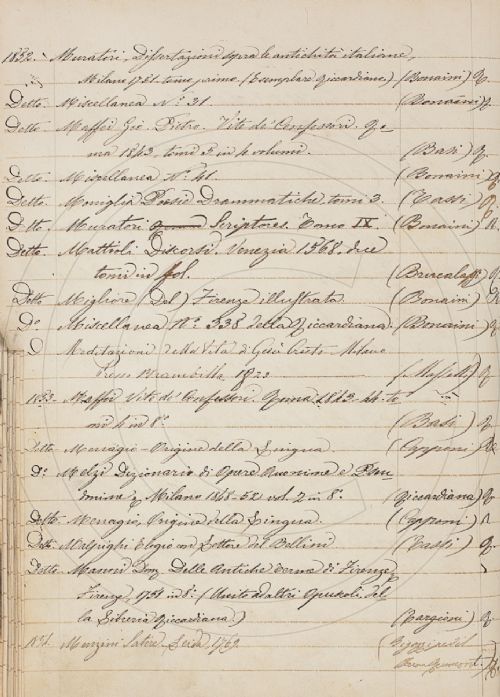 1852. Muratori, Dissertazioni sopra le antichità italiane,
Milano 1751 tomo primo (Esemplare Riccardiano) (Bonaini) R.
Detto. Miscellanea N.° 21. (Bonaini) R.
Detto. Maffei Gio. Pietro. Vite de' Confessori. Ro-
ma 1843, tomi 3 in 4 volumi. (Basi) R.
Detto. Miscellanea N.° 41. (Bonaini) R.
Detto. Moniglia Poesie Drammatiche tomi 3. (Tassi) R.
Detto. Muratori Scriptores. Tomo IX (Bonaini) R.
Detto. Mattioli Discorsi. Venezia 1568. due
tomi in fol. R.
Detto Migliore (Del) Firenze illustrata. (Bonaini) R.
D.° Miscellanea N.° 338 della Riccardiana. (Bonaini) R.
D Meditazioni della Vita di Gesù Cristo Milano
R.
1853. Maffei Vite de' Confessori. Roma, 1843-44. to-
mi 4 in 8.° (Basi) R.
Detto Menagio - Origine della Lingua (Capponi) R.
D.° Melzi Dizionario di Opere Anonime e Pseu-
donime Milano 1848-52. vol. 2 in 8.° (Riccardiana) R.
Detto. Menagio, Origine della Lingua. (Capponi) R.
Detto Malpighi Elogio con Lettere del Bellini (Tassi) R.
Detto Manni Dom. Delle Antiche Terme di Firenze,
Firenze, 1751 in 8.° (Unito ad altri Opuscoli del-
la Libreria Riccardiana.) (Bargioni) R.
Menzini Satire 1769